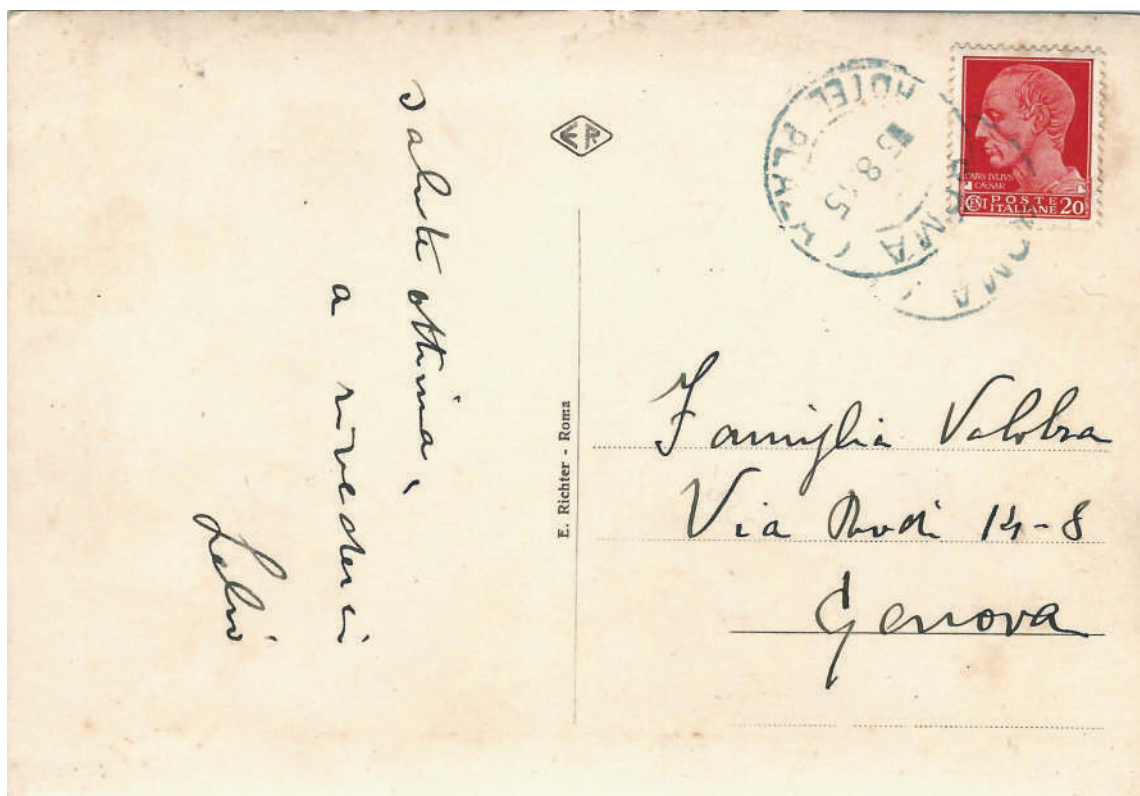 salute ottima,
a rivederci
Lelio
ER
E. Richter - Roma
HOTEL PLAZA
8
ROMA
ROMA
CAIVS IVLIVS
CAESAR
CENT POSTE
ITALIANE 20
Famiglia Valobra
Via Rodi 14-8
Genova